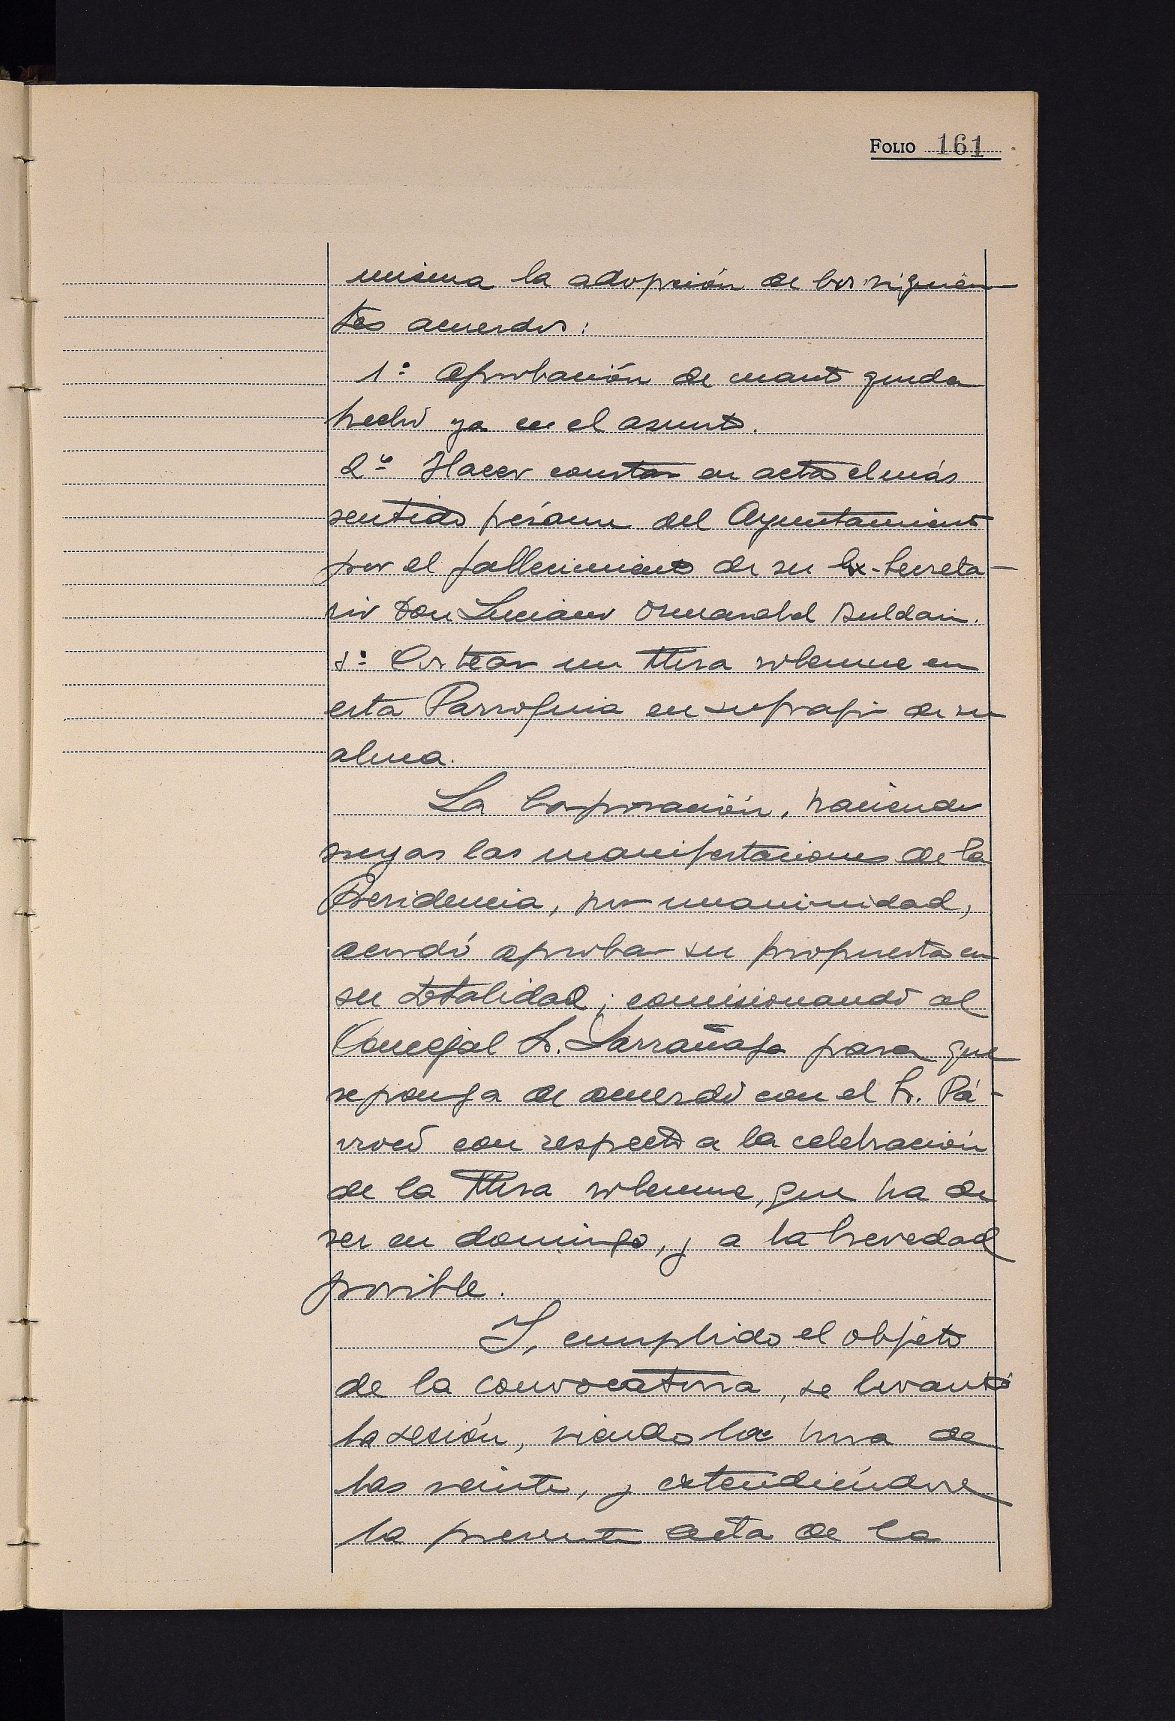 FOLIO 161
misma la adopción de los siguien
tes acuerdos:
1º Aprobación de cuanto queda
hecho ya en el asunto.
2º Hacer constar en acta el más
sentido pésame del Ayuntamiento
por el fallecimiento de su Ex-Secreta-
rio Don Luciano
3º Costear un Misa solemne en
esta Parroquia en sufragio de su
alma.
La Corporación, haciendo
suyas las manifestaciones de la
Presidencia, por unanimidad,
acordó aprobar su propuesta en
su totalidad; comisionando al
Concejal Sr. Larrañaga para que
se ponga de acuerdo con el Sr. Pá-
rroco con respecto a la celebración
de la Misa solemne, que ha de
ser en domingo, y a la brevedad
posible.
Y, cumplido el objeto
de la convocatoria, se levantó
la sesión, siendo la hora de
las veinte, y extendiéndose
la presente acta de la